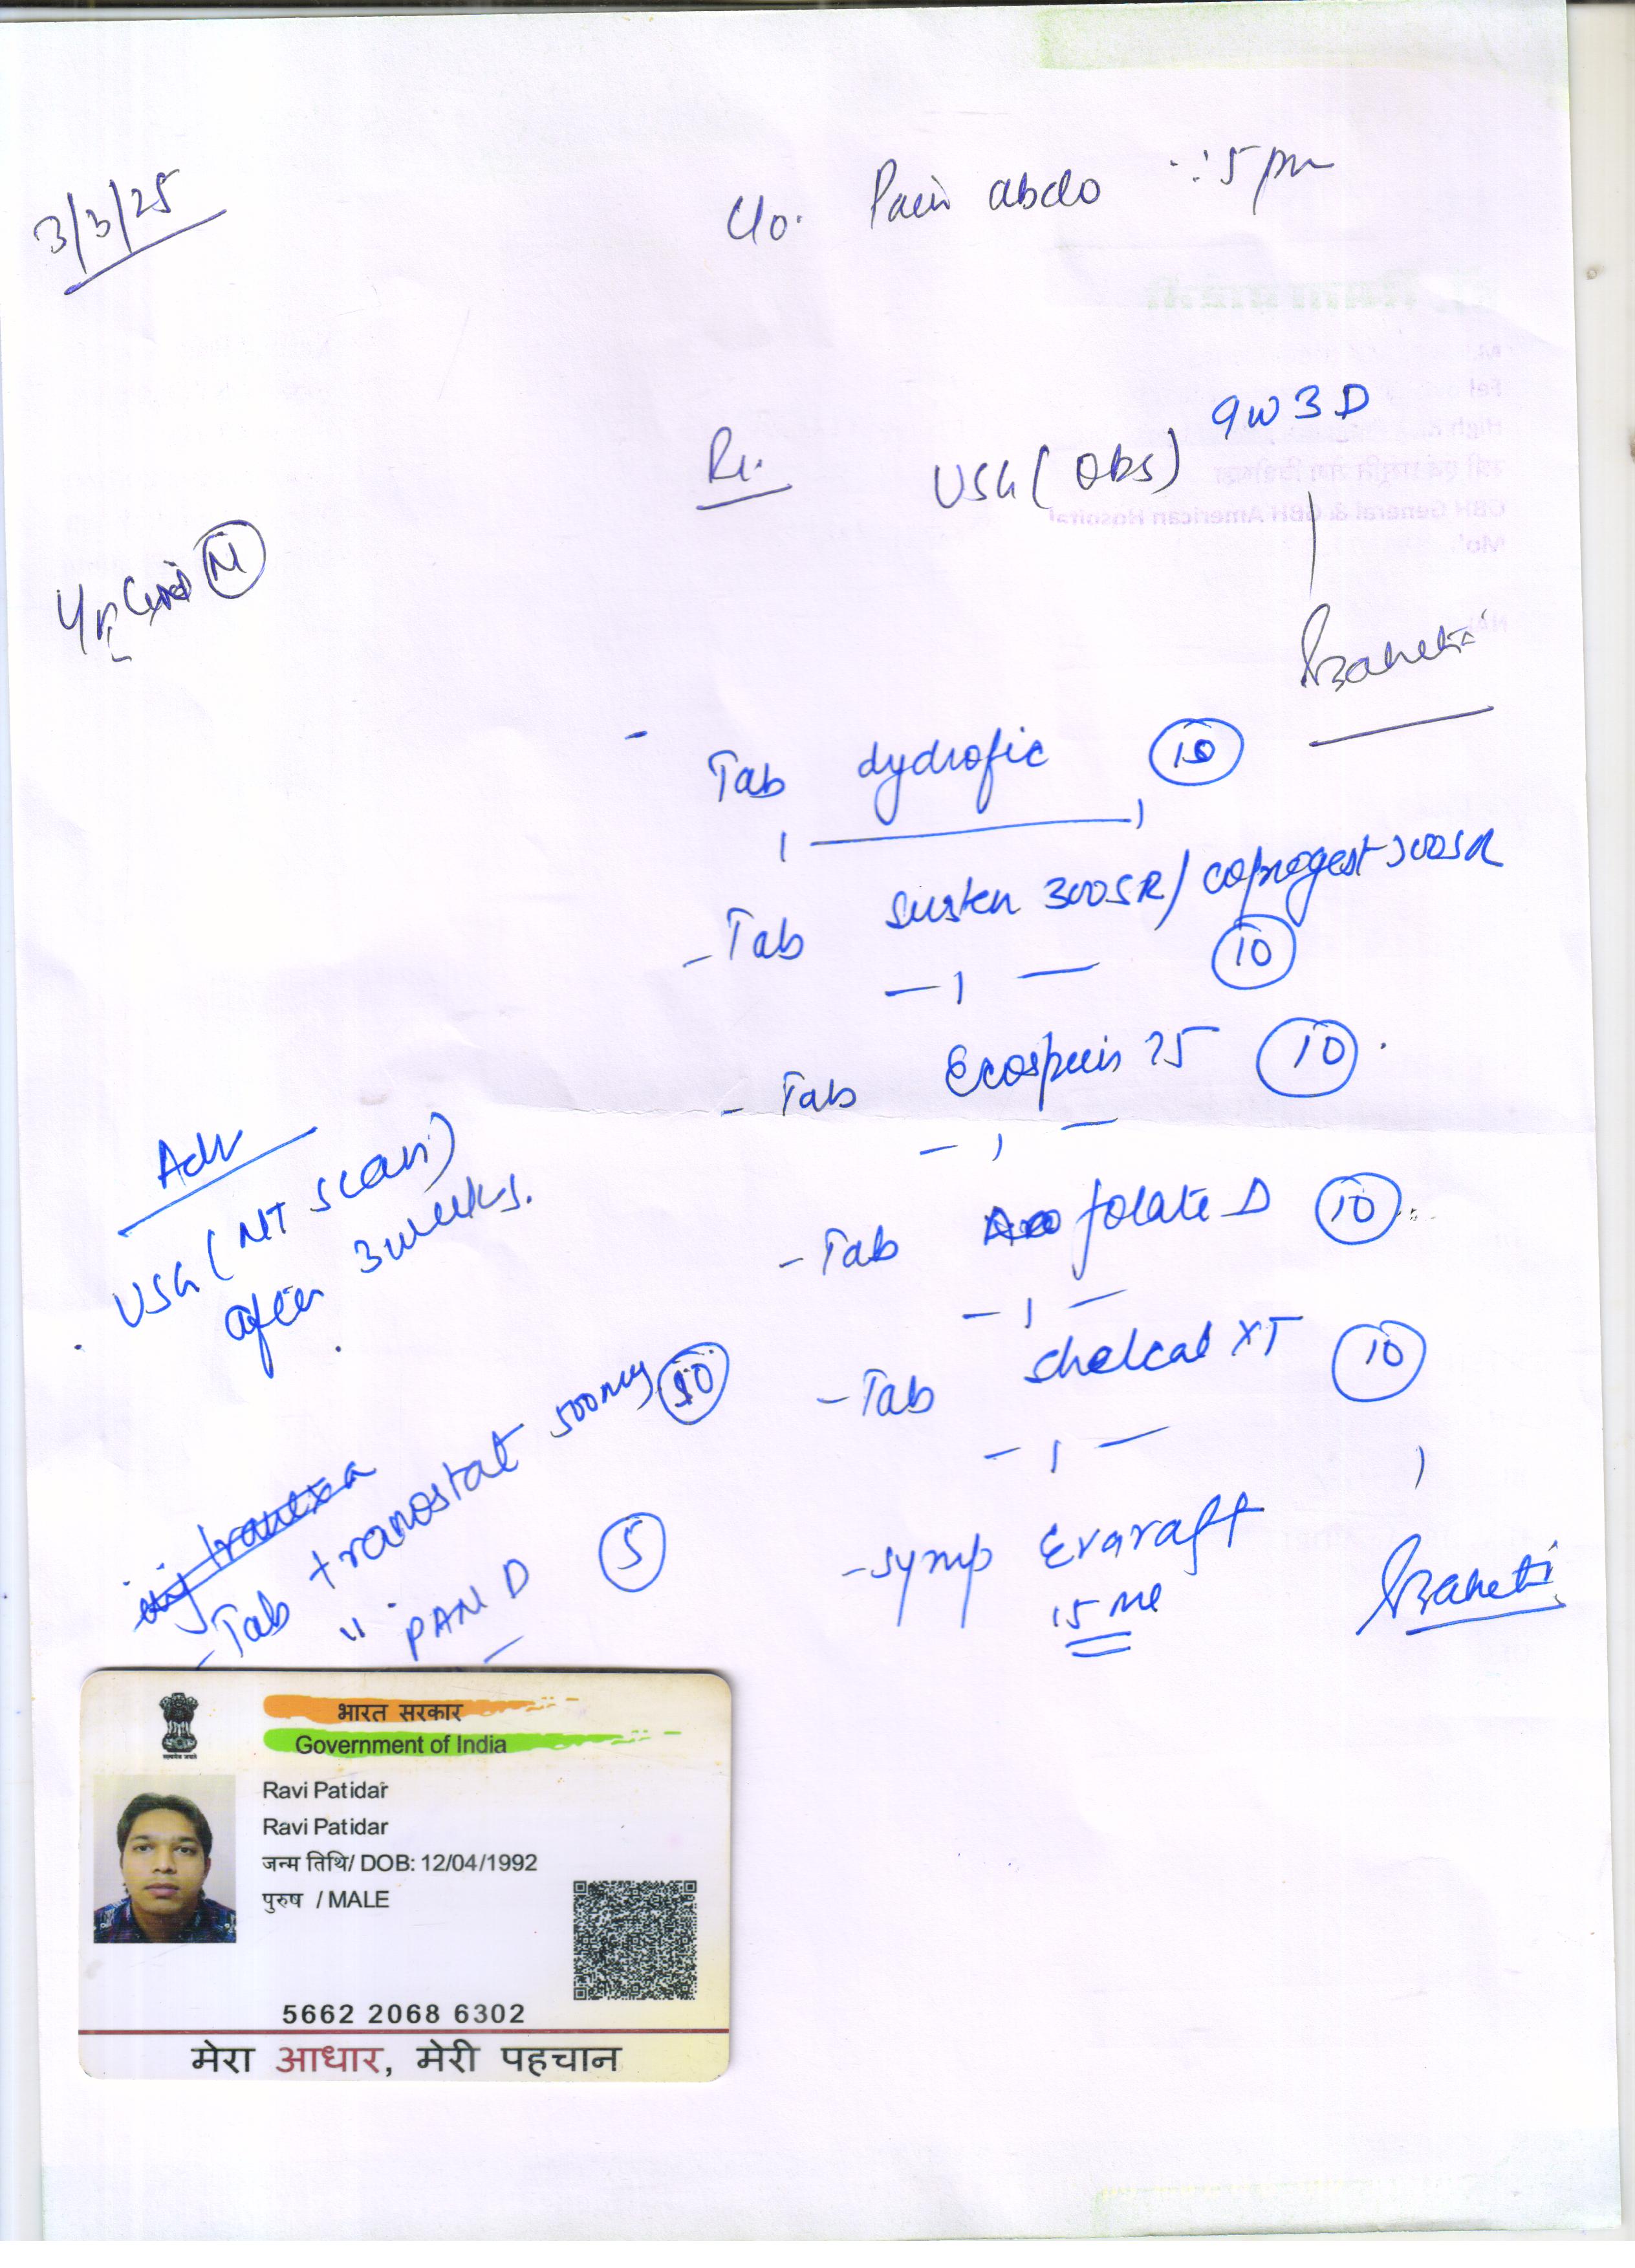 3/3/25
C/o. Pain abdo ∵ 5 pm
Rx.
USG (Obs) 9W 3D
(N)
Tab dydrofic (10)
1 — 1
- Tab susten 300SR / coprogest 300SR
— 1 — (10)
- Tab Ecosprin 75 (10)
— 1 —
- Tab folate D (10)
— 1 —
- Tab shelcal XT (10)
— 1 —
- syrup Evaraft
15 ml
Adv
USG (NT scan)
after 3 weeks.
inj tranexa
- Tab tranostat 500mg (10)
" PAN D (5)
भारत सरकार
Government of India
Ravi Patidar
Ravi Patidar
जन्म तिथि/ DOB: 12/04/1992
पुरुष / MALE
5662 2068 6302
मेरा आधार, मेरी पहचान